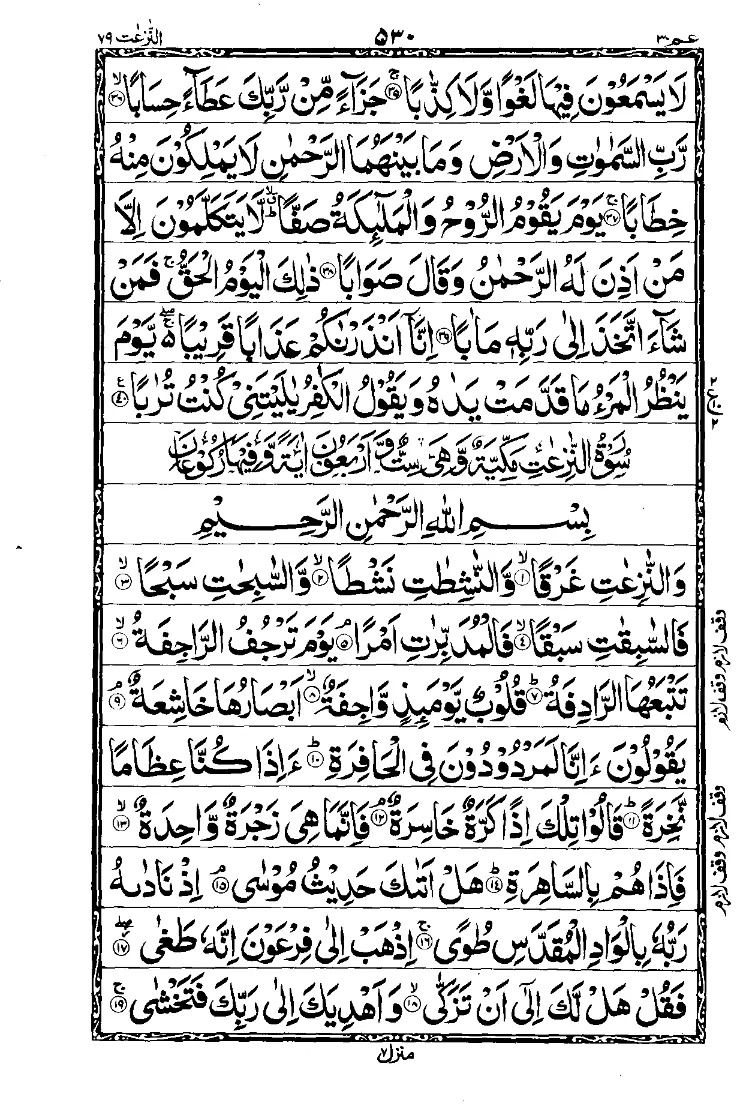 عم ۳۰
۵۳۰
النّٰزعٰت ۷۹
لَا يَسْمَعُوْنَ فِيْهَا لَغْوًا وَّلَا كِذّٰبًا ۚ﴿۳۵﴾ جَزَآءً مِّنْ رَّبِّكَ عَطَآءً حِسَابًا ۙ﴿۳۶﴾
رَّبِّ السَّمٰوٰتِ وَالْاَرْضِ وَمَا بَيْنَهُمَا الرَّحْمٰنِ لَا يَمْلِكُوْنَ مِنْهُ
خِطَابًا ۚ﴿۳۷﴾ يَوْمَ يَقُوْمُ الرُّوْحُ وَالْمَلٰٓئِكَةُ صَفًّا ؕۙ لَّا يَتَكَلَّمُوْنَ اِلَّا
مَنْ اَذِنَ لَهُ الرَّحْمٰنُ وَقَالَ صَوَابًا ﴿۳۸﴾ ذٰلِكَ الْيَوْمُ الْحَقُّ ۚ فَمَنْ
شَآءَ اتَّخَذَ اِلٰى رَبِّهٖ مَاٰبًا ﴿۳۹﴾ اِنَّاۤ اَنْذَرْنٰكُمْ عَذَابًا قَرِيْبًا ۖۚ۬ يَّوْمَ
يَنْظُرُ الْمَرْءُ مَا قَدَّمَتْ يَدٰهُ وَيَقُوْلُ الْكٰفِرُ يٰلَيْتَنِيْ كُنْتُ تُرٰبًا ﴿۴۰﴾ ع
سُوْرَةُ النّٰزِعٰتِ مَكِّيَّةٌ وَّهِيَ سِتٌّ وَّاَرْبَعُوْنَ اٰيَةً وَّفِيْهَا رُكُوْعَانِ
بِسْمِ اللّٰهِ الرَّحْمٰنِ الرَّحِيْمِ
وَالنّٰزِعٰتِ غَرْقًا ۙ﴿۱﴾ وَّالنّٰشِطٰتِ نَشْطًا ۙ﴿۲﴾ وَّالسّٰبِحٰتِ سَبْحًا ۙ﴿۳﴾
فَالسّٰبِقٰتِ سَبْقًا ۙ﴿۴﴾ فَالْمُدَبِّرٰتِ اَمْرًا ۘ﴿۵﴾ يَوْمَ تَرْجُفُ الرَّاجِفَةُ ۙ﴿۶﴾
تَتْبَعُهَا الرَّادِفَةُ ؕ﴿۷﴾ قُلُوْبٌ يَّوْمَئِذٍ وَّاجِفَةٌ ۙ﴿۸﴾ اَبْصَارُهَا خَاشِعَةٌ ۘ﴿۹﴾
يَقُوْلُوْنَ ءَاِنَّا لَمَرْدُوْدُوْنَ فِي الْحَافِرَةِ ؕ﴿۱۰﴾ ءَاِذَا كُنَّا عِظَامًا
نَّخِرَةً ؕ﴿۱۱﴾ قَالُوْا تِلْكَ اِذًا كَرَّةٌ خَاسِرَةٌ ۘ﴿۱۲﴾ فَاِنَّمَا هِيَ زَجْرَةٌ وَّاحِدَةٌ ۙ﴿۱۳﴾
فَاِذَا هُمْ بِالسَّاهِرَةِ ؕ﴿۱۴﴾ هَلْ اَتٰىكَ حَدِيْثُ مُوْسٰى ۘ﴿۱۵﴾ اِذْ نَادٰىهُ
رَبُّهٗ بِالْوَادِ الْمُقَدَّسِ طُوًى ۚ﴿۱۶﴾ اِذْهَبْ اِلٰى فِرْعَوْنَ اِنَّهٗ طَغٰى ۖ﴿۱۷﴾
فَقُلْ هَلْ لَّكَ اِلٰۤى اَنْ تَزَكّٰى ۙ﴿۱۸﴾ وَاَهْدِيَكَ اِلٰى رَبِّكَ فَتَخْشٰى ۚ﴿۱۹﴾
وقف لازم
وقف لازم
وقف لازم
وقف لازم
منزل ۷